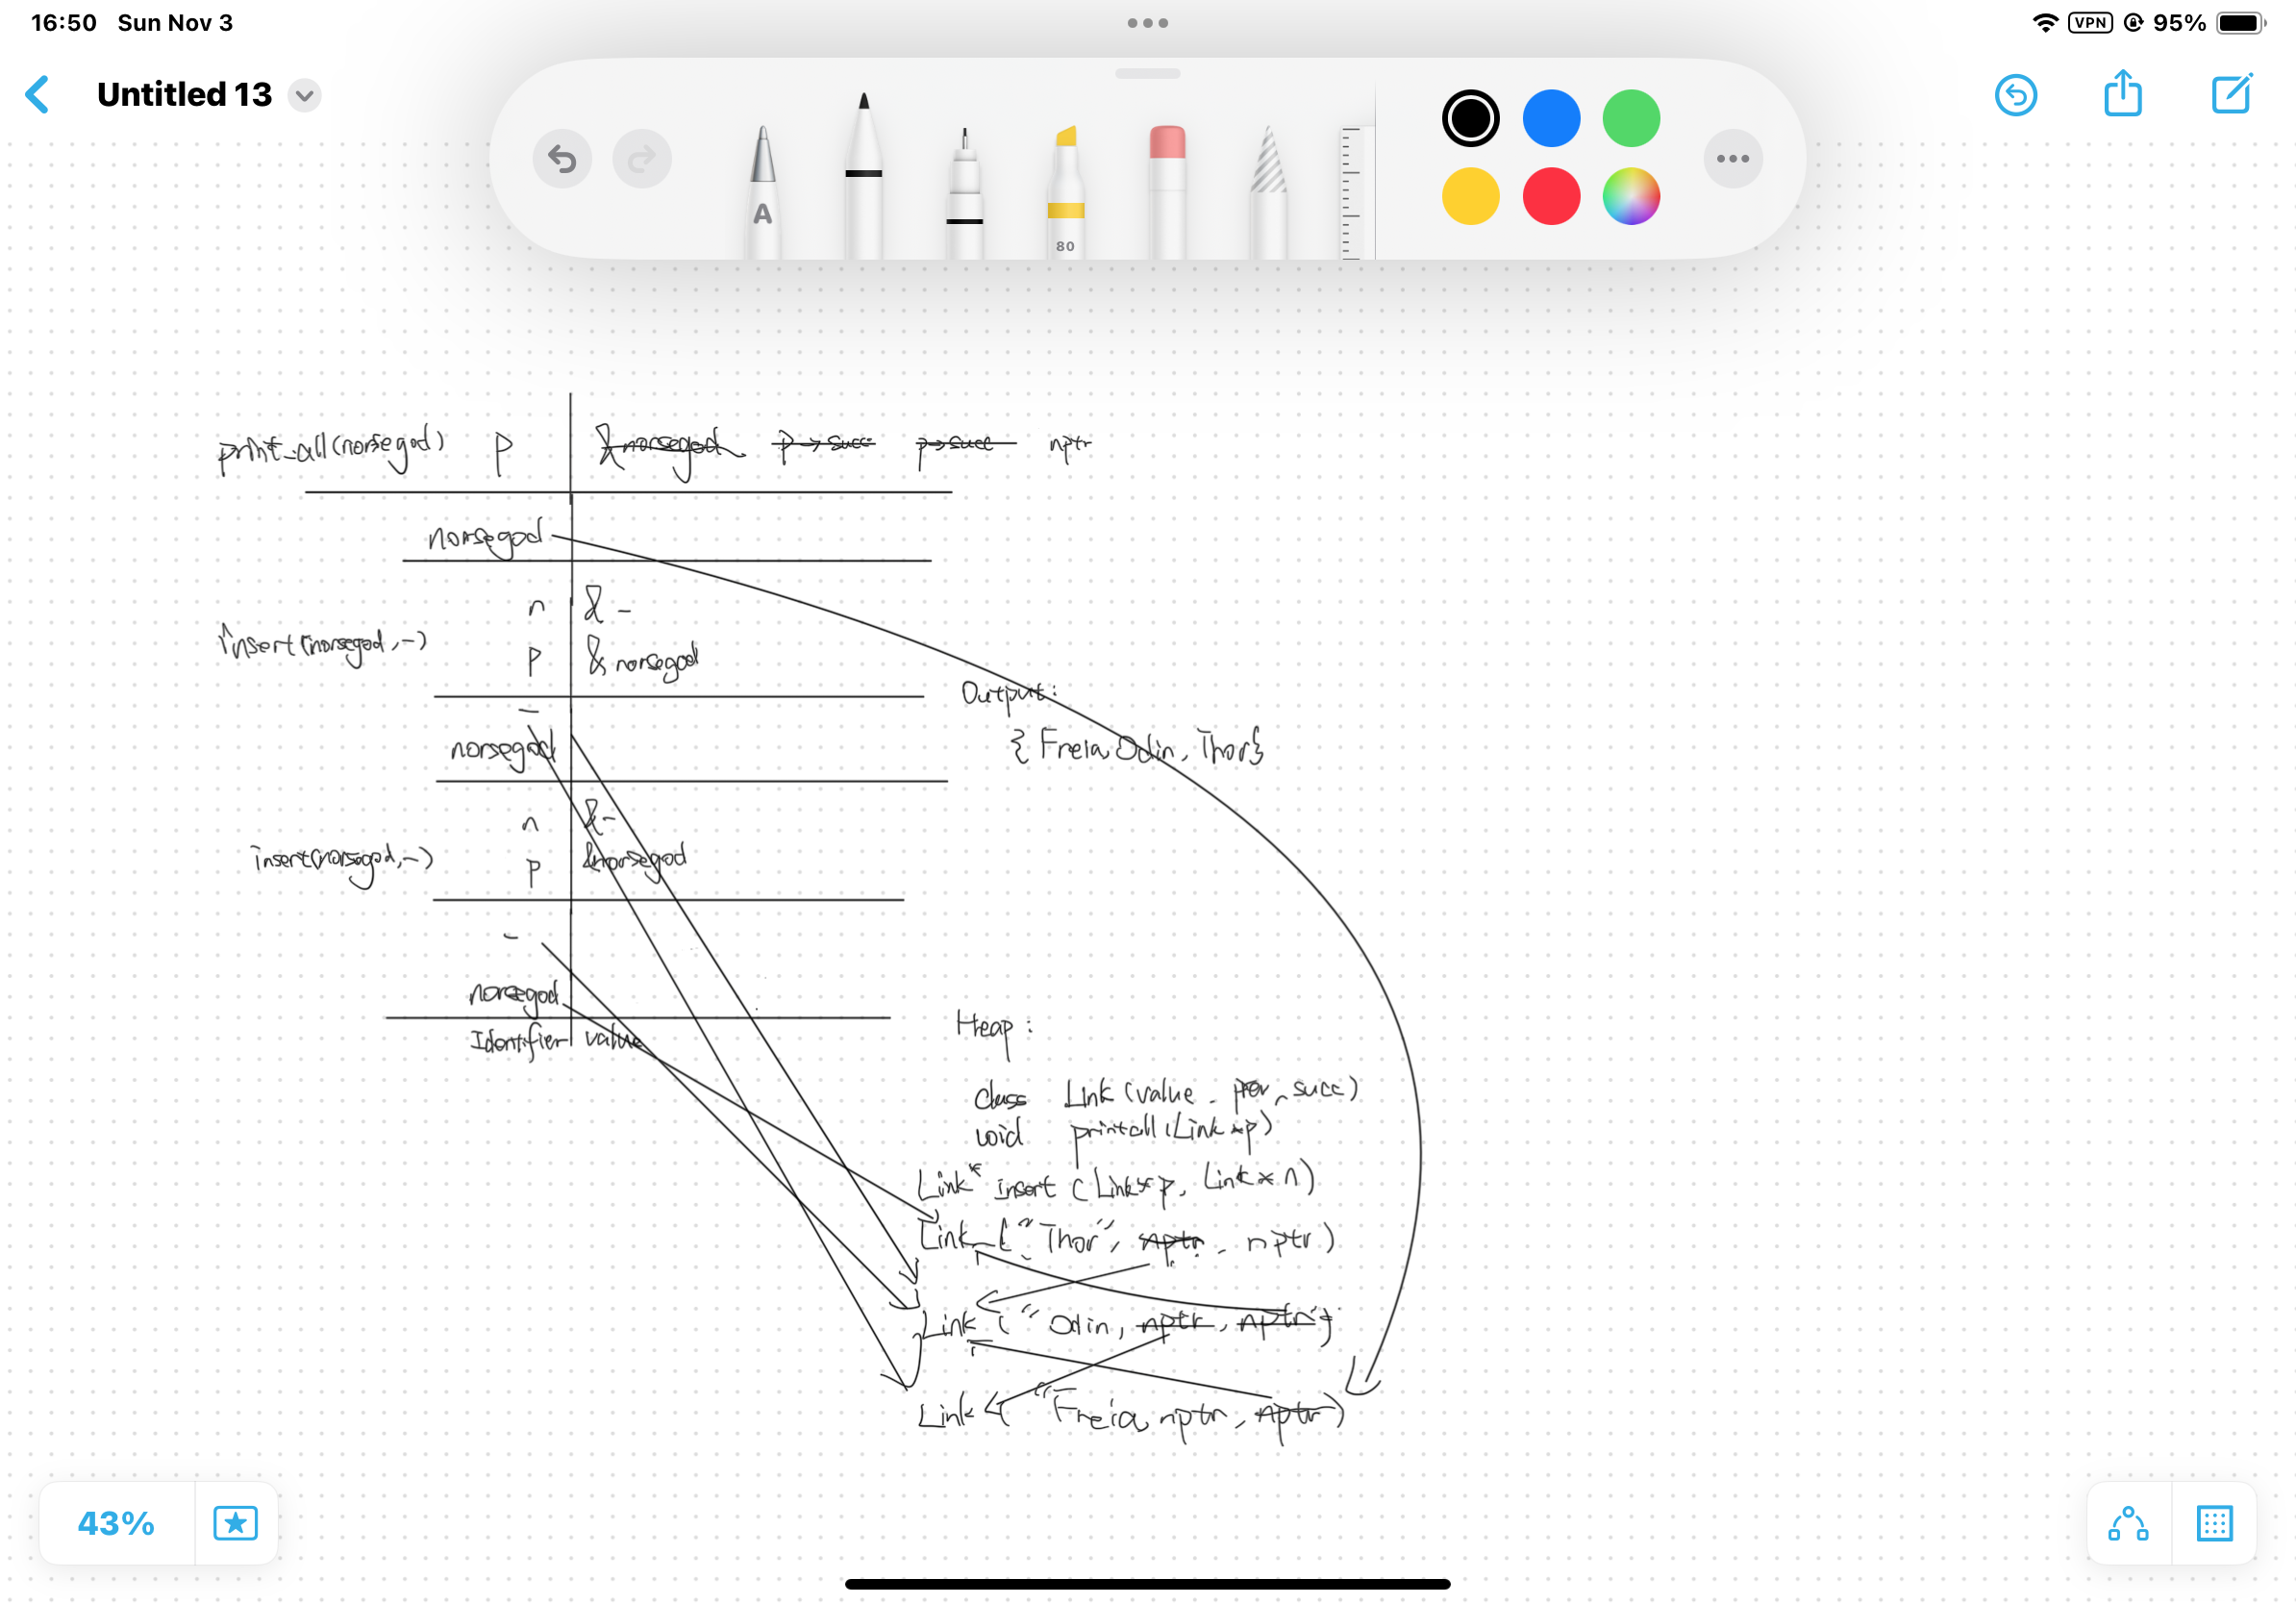 16:50 Sun Nov 3
VPN 95%
Untitled 13
A
80
print_all(norsegod) p &norsegod p→succ p→succ nptr
norsegod
n & -
insert(norsegod, -)
p & norsegod
-
Output:
norsegod
{ Freia, Odin, Thor}
n &-
insert(norsegod, -)
p &norsegod
-
norsegod
Identifier value
Heap :
class Link (value, succ)
void printall (Link *p)
Link* insert (Link* p, Link * n)
Link ("Thor", nptr, nptr)
Link ("Odin, nptr, nptr")
Link ("Freia, nptr, nptr)
43%